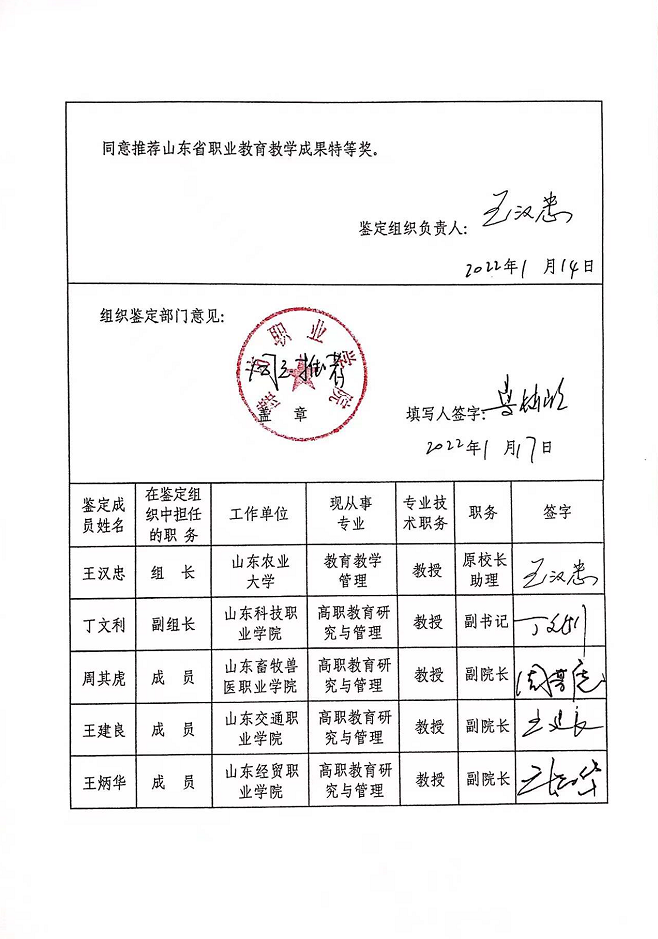 同意推荐山东省职业教育教学成果特等奖。
鉴定组织负责人：王汉忠
2022年1月14日
组织鉴定部门意见：
职业学院
同意推荐
盖 章
填写人签字：
2022年1月17日
鉴定成员姓名 在鉴定组织中担任的职务 工作单位 现从事专业 专业技术职务 职务 签字
王汉忠 组 长 山东农业大学 教育教学管理 教授 原校长助理 王汉忠
丁文利 副组长 山东科技职业学院 高职教育研究与管理 教授 副书记 丁文利
周其虎 成 员 山东畜牧兽医职业学院 高职教育研究与管理 教授 副院长 周其虎
王建良 成 员 山东交通职业学院 高职教育研究与管理 教授 副院长 王建良
王炳华 成 员 山东经贸职业学院 高职教育研究与管理 教授 副院长 王炳华